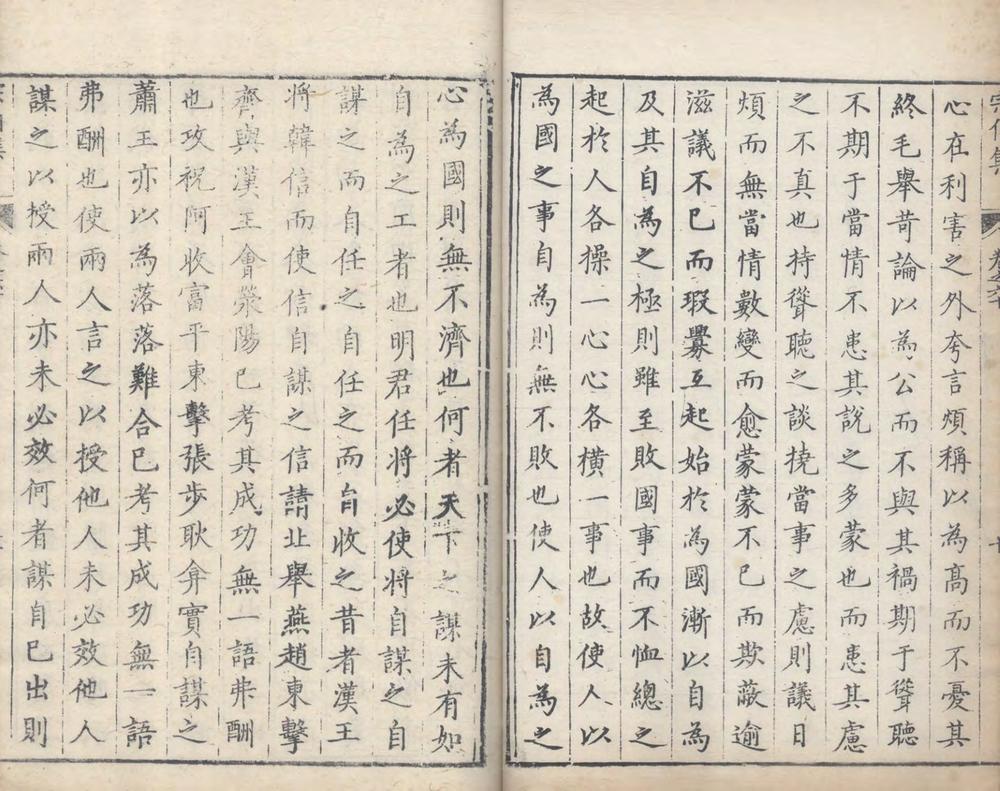 心在利害之外夸言煩稱以為高而不憂其
終毛舉苛論以為公而不與其禍期于聳聽
不期于當情不患其說之多蒙也而患其慮
之不真也持聳聽之談撓當事之慮則議日
煩而無當情數變而愈蒙蒙不已而欺蔽逾
滋議不已而瑕釁互起始於為國漸以自為
及其自為之極則雖至敗國事而不恤總之
起於人各操一心心各橫一事也故使人以
為國之事自為則無不敗也使人以自為之
心為國則無不濟也何者天下之謀未有如
自為之工者也明君任將必使將自謀之自
謀之而自任之自任之而自收之昔者漢王
將韓信而使信自謀之信請北舉燕趙東擊
齊與漢王會滎陽已考其成功無一語弗酬
也攻祝阿收富平東擊張步耿弇實自謀之
蕭王亦以為落落難合已考其成功無一語
弗酬也使兩人言之以授他人未必效他人
謀之以授兩人亦未必效何者謀自已出則